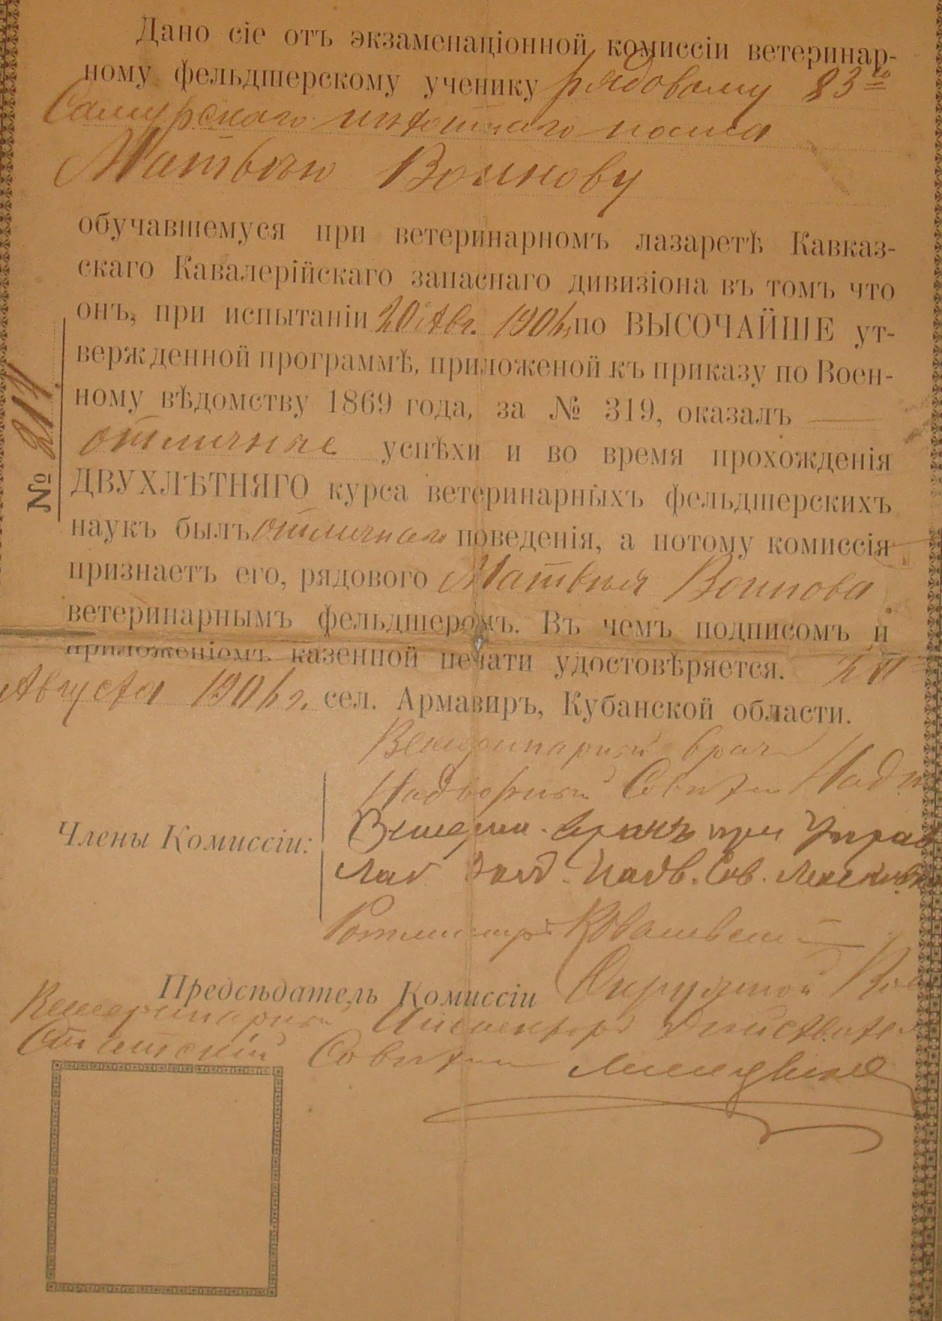 Дано сіе отъ экзаменаціонной комиссіи ветеринар-
ному фельдшерскому ученику рядовому 83го
Самурскаго пѣхотнаго полка
Матвѣю Воинову
обучавшемуся при ветеринарномъ лазаретѣ Кавказ-
скаго Кавалерійскаго запаснаго дивизіона въ томъ что
онъ, при испытаніи 20 Авг. 1906 г. по ВЫСОЧАЙШЕ ут-
вержденной программѣ, приложеной къ приказу по Воен-
ному вѣдомству 1869 года, за № 319, оказалъ
отличные успѣхи и во время прохожденія
ДВУХЛѢТНЯГО курса ветеринарныхъ фельдшерскихъ
наукъ былъ отличнаго поведенія, а потому комиссія
признаетъ его, рядового Матвѣя Воинова
ветеринарнымъ фельдшеромъ. Въ чемъ подписомъ и
приложеніомъ казенной печати удостовѣряется.
Августа 1906 г. сел. Армавиръ, Кубанской области.
№
Ветеринарный врачъ
Надворный Совѣтникъ
Члены Комиссіи:
Ветерин. врачъ при Управ
Надв. Сов.
Ротмистръ Ковалевскій
Предсѣдатель Комиссіи Окружной
Ветеринарный Инспекторъ Дѣйствител
Статскій Совѣтникъ